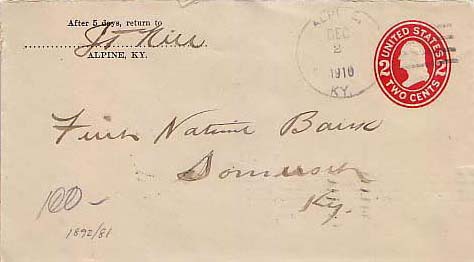 After 5 days, return to
ALPINE, KY.
ALPINE
DEC
2
1910
KY.
UNITED STATES
2 2
TWO CENTS
First National Bank
Somerset
Ky.
100-
1892/81